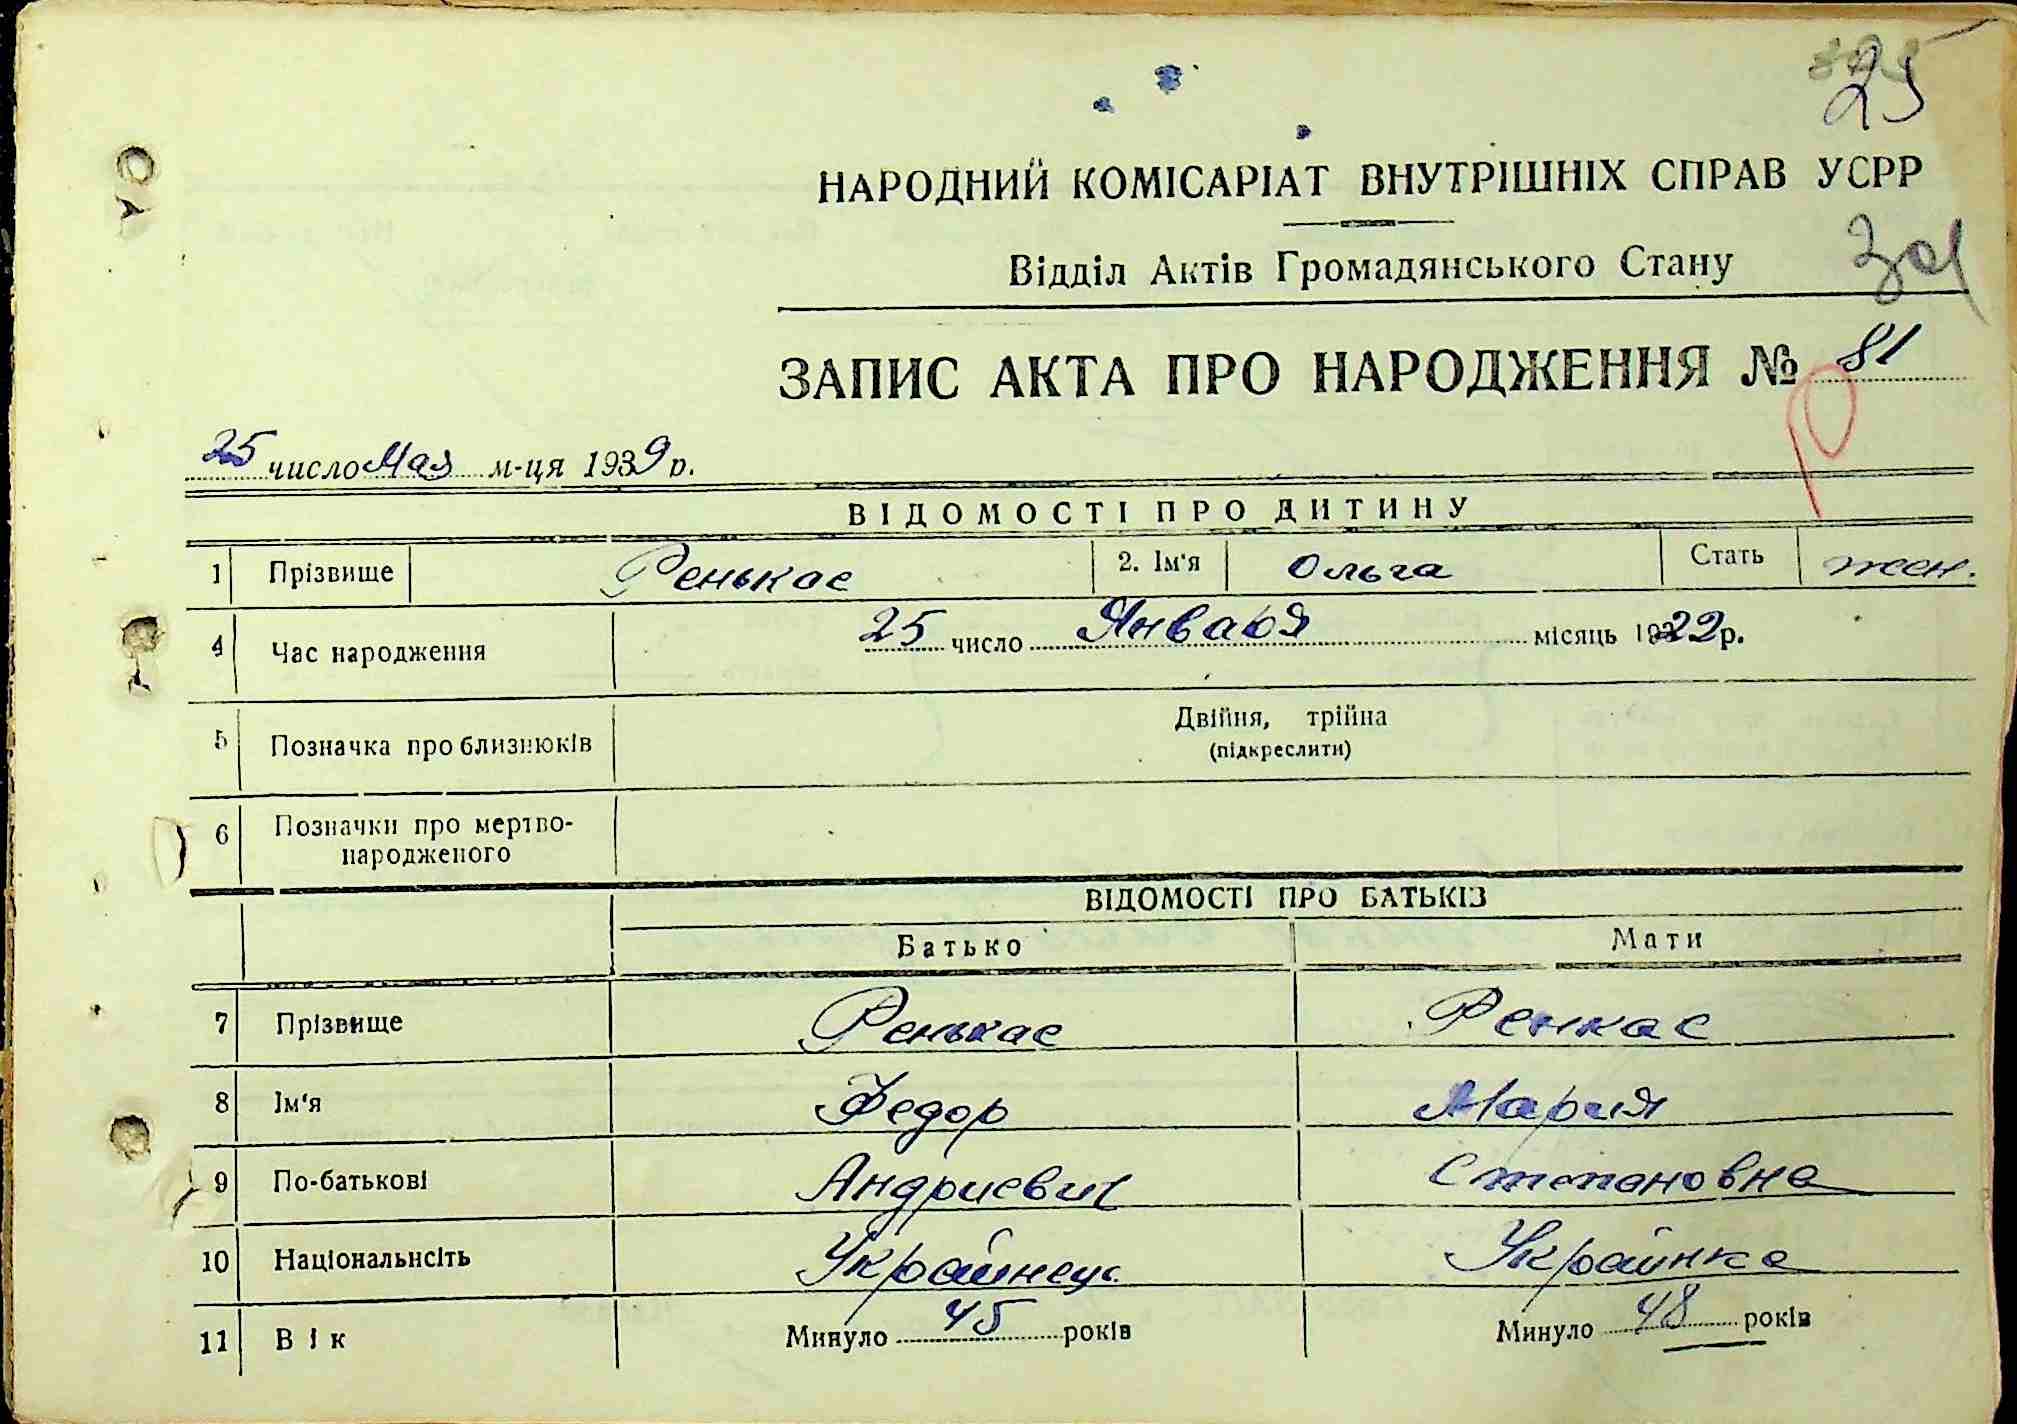 25
НАРОДНИЙ КОМІСАРІАТ ВНУТРІШНІХ СПРАВ УСРР
Відділ Актів Громадянського Стану
ЗАПИС АКТА ПРО НАРОДЖЕННЯ № 81
25 число Мая м-ця 1939 р.
ВІДОМОСТІ ПРО ДИТИНУ
1 Прізвище Ренькас 2. Ім'я Ольга Стать жен.
4 Час народження 25 число Января місяць 1922 р.
5 Позначка про близнюків Двійня, трійна
(підкреслити)
6 Позначки про мертво-
народженого
ВІДОМОСТІ ПРО БАТЬКІВ
Батько Мати
7 Прізвище Ренькас Ренкас
8 Ім'я Федор Мария
9 По-батькові Андриевич Степановна
10 Національнсіть Украйнець Украйнка
11 Вік Минуло 45 років Минуло 48 років